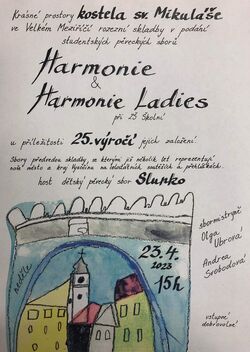 Krásné prostory kostela sv. Mikuláše
ve Velkém Meziříčí rozezní skladby v podání
studentských pěveckých sborů
Harmonie
&
Harmonie Ladies
při ZŠ Školní
u příležitosti 25.výročí jejich založení
Sbory předvedou skladby, se kterými již několik let reprezentují
naše město a kraj Vysočina na celostátních soutěžích a přehlídkách.
host dětský pěvecký sbor Slunko
sbormistryně
Olga
Ubrová
Andrea
Svobodová
neděle
23.4.
2023
15h
vstupné
dobrovolné